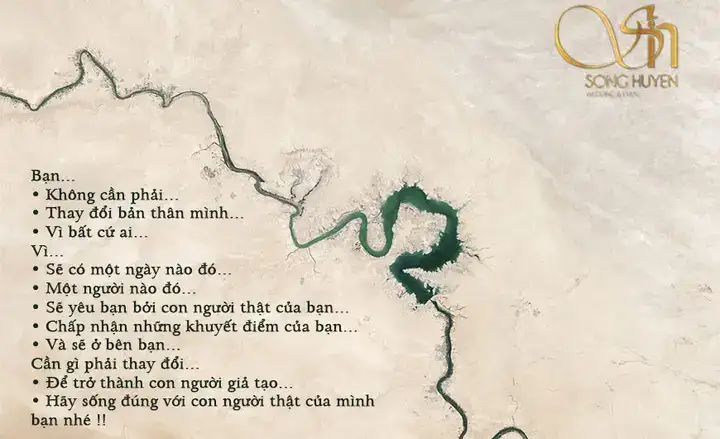 SONG HUYEN
WEDDING & EVENT
Bạn...
• Không cần phải...
• Thay đổi bản thân mình...
• Vì bất cứ ai...
Vì...
• Sẽ có một ngày nào đó...
• Một người nào đó...
• Sẽ yêu bạn bởi con người thật của bạn...
• Chấp nhận những khuyết điểm của bạn...
• Và sẽ ở bên bạn...
Cần gì phải thay đổi...
• Để trở thành con người giả tạo...
• Hãy sống đúng với con người thật của mình
bạn nhé !!